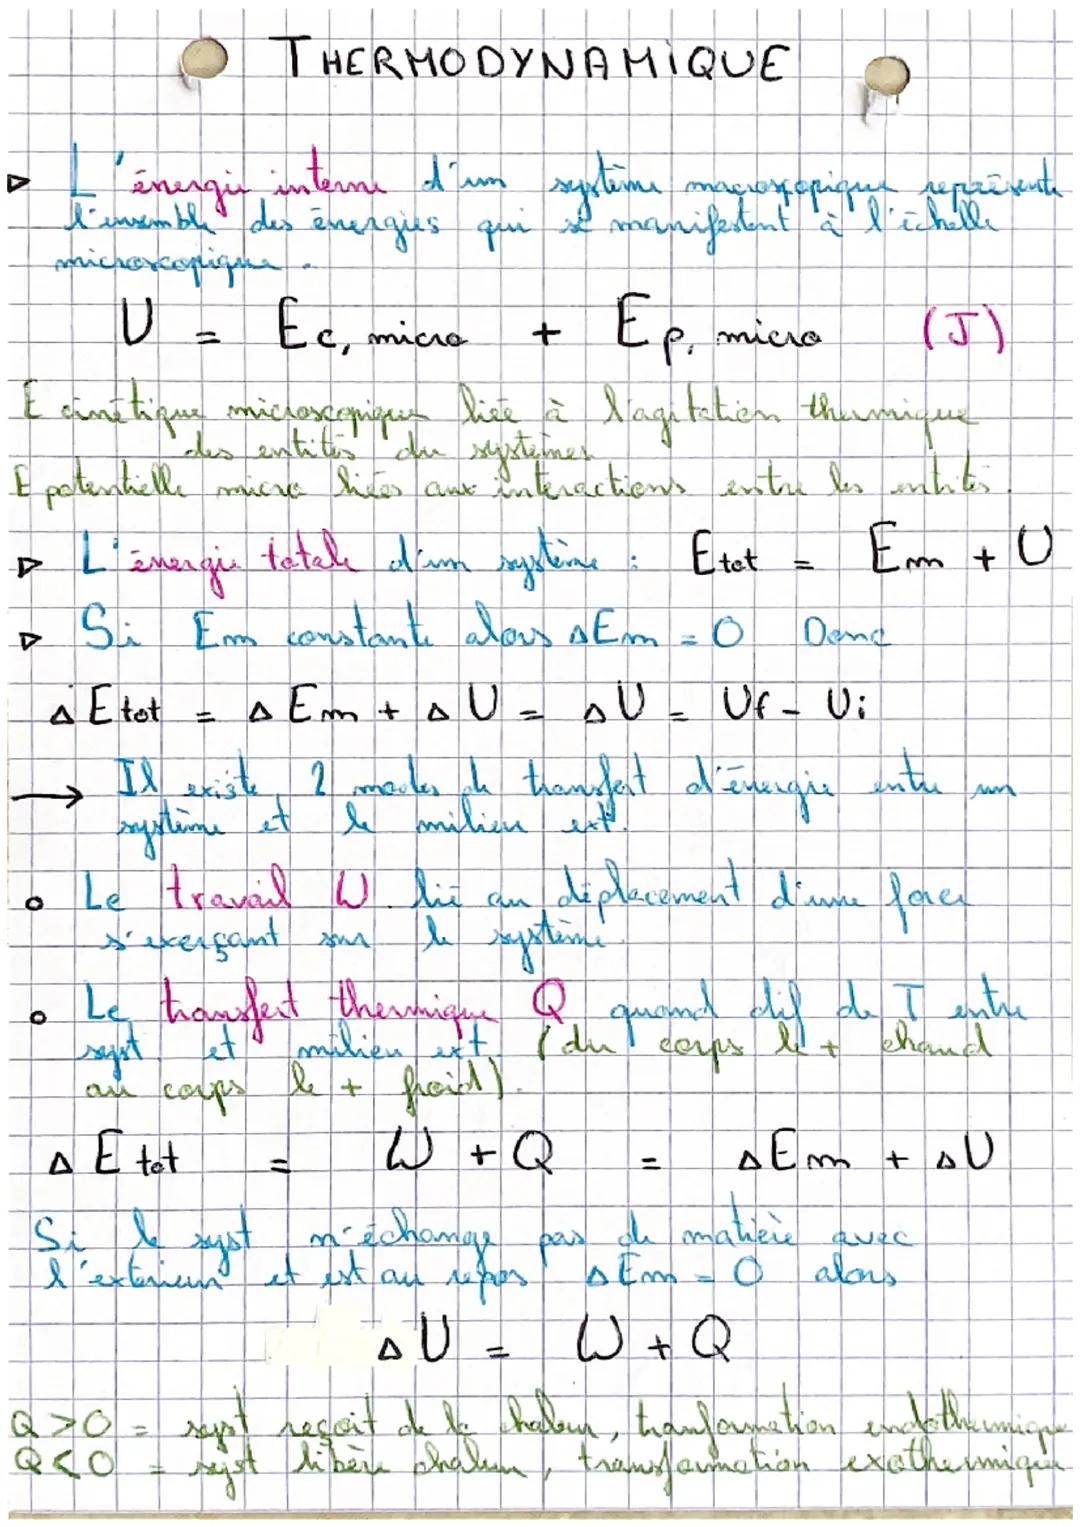 THERMODYNAMIQUE
L'énergie interne d'un système macroscopique représente
l'ensemble des énergies qui se manifestent à l'échelle
microscopique.
U = Ec, micro + Ep, micro (J)
E cinétique microscopique liée à l'agitation thermique
des entités du systèmes
E potentielle micro liées aux interactions entre les entités.
L'énergie totale d'un système : Etot = Em + U
Si Em constante alors ΔEm = 0 Donc
ΔEtot = ΔEm + ΔU = ΔU = Uf - Ui
→ Il existe 2 modes de transfert d'énergie entre un
système et le milieu ext.
Le travail W lié au déplacement d'une force
s'exerçant sur le système.
Le transfert thermique Q quand dif de T entre
syst et milieu ext. (du corps le + chaud
au corps le + froid).
ΔEtot = W + Q = ΔEm + ΔU
Si le syst n'échange pas de matière avec
l'extérieur et est au repos ΔEm = 0 alors
ΔU = W + Q
Q > 0 = syst reçoit de la chaleur, tranformation endothermique
Q < 0 = syst libère chaleur, transformation exothermique